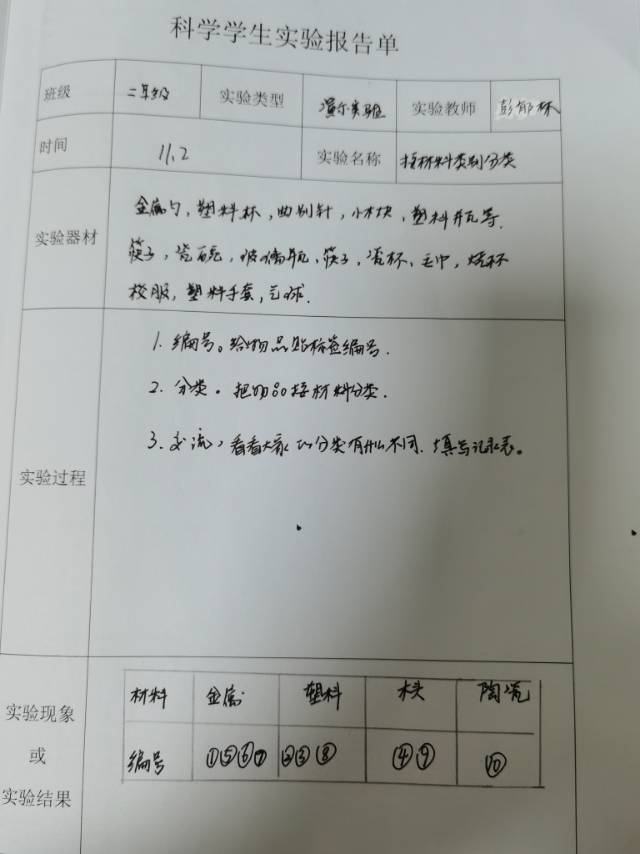 科学学生实验报告单
班级 二年级 实验类型 演示实验 实验教师 彭郁林
时间 11.2 实验名称 按材料类别分类
实验器材
金属勺,塑料杯,曲别针,小木块,塑料瓶等.
筷子,瓷碗,玻璃瓶、筷子,瓷杯、毛巾,烧杯
校服,塑料手套,气球.
实验过程
1. 编号。给物品贴标签编号.
2. 分类。把物品按材料分类.
3. 交流,看看大家的分类有什么不同.填写记录表。
实验现象
或
实验结果
材料 金属 塑料 木头 陶瓷
编号 ①⑤⑥⑦ ②③⑧ ④⑨ ⑩